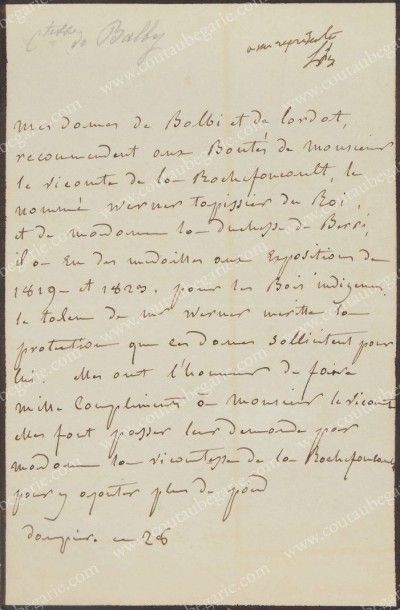 Ctesse de Balby
Mesdames de Balbi et de Lordat,
recommendent aux Boutés de monsieur
le vicomte de la Rochefoucault, le
nommé Werner tapissier du Roi,
et de madame la duchesse de Berri,
il a eu des medailles aux Expositions de
1819 et 1823. pour les Bois indigenes
le talen de mr Werner meritte la
protection que ces dames sollicitent pour
lui. elles ont l'honneur de faire
mille Compliments à monsieur le vicomte
elles font passer leur demande par
madame la vicomtesse de la Rochefoucault
pour y ajouter plus de poid
en 26
www.coutaubegarie.com